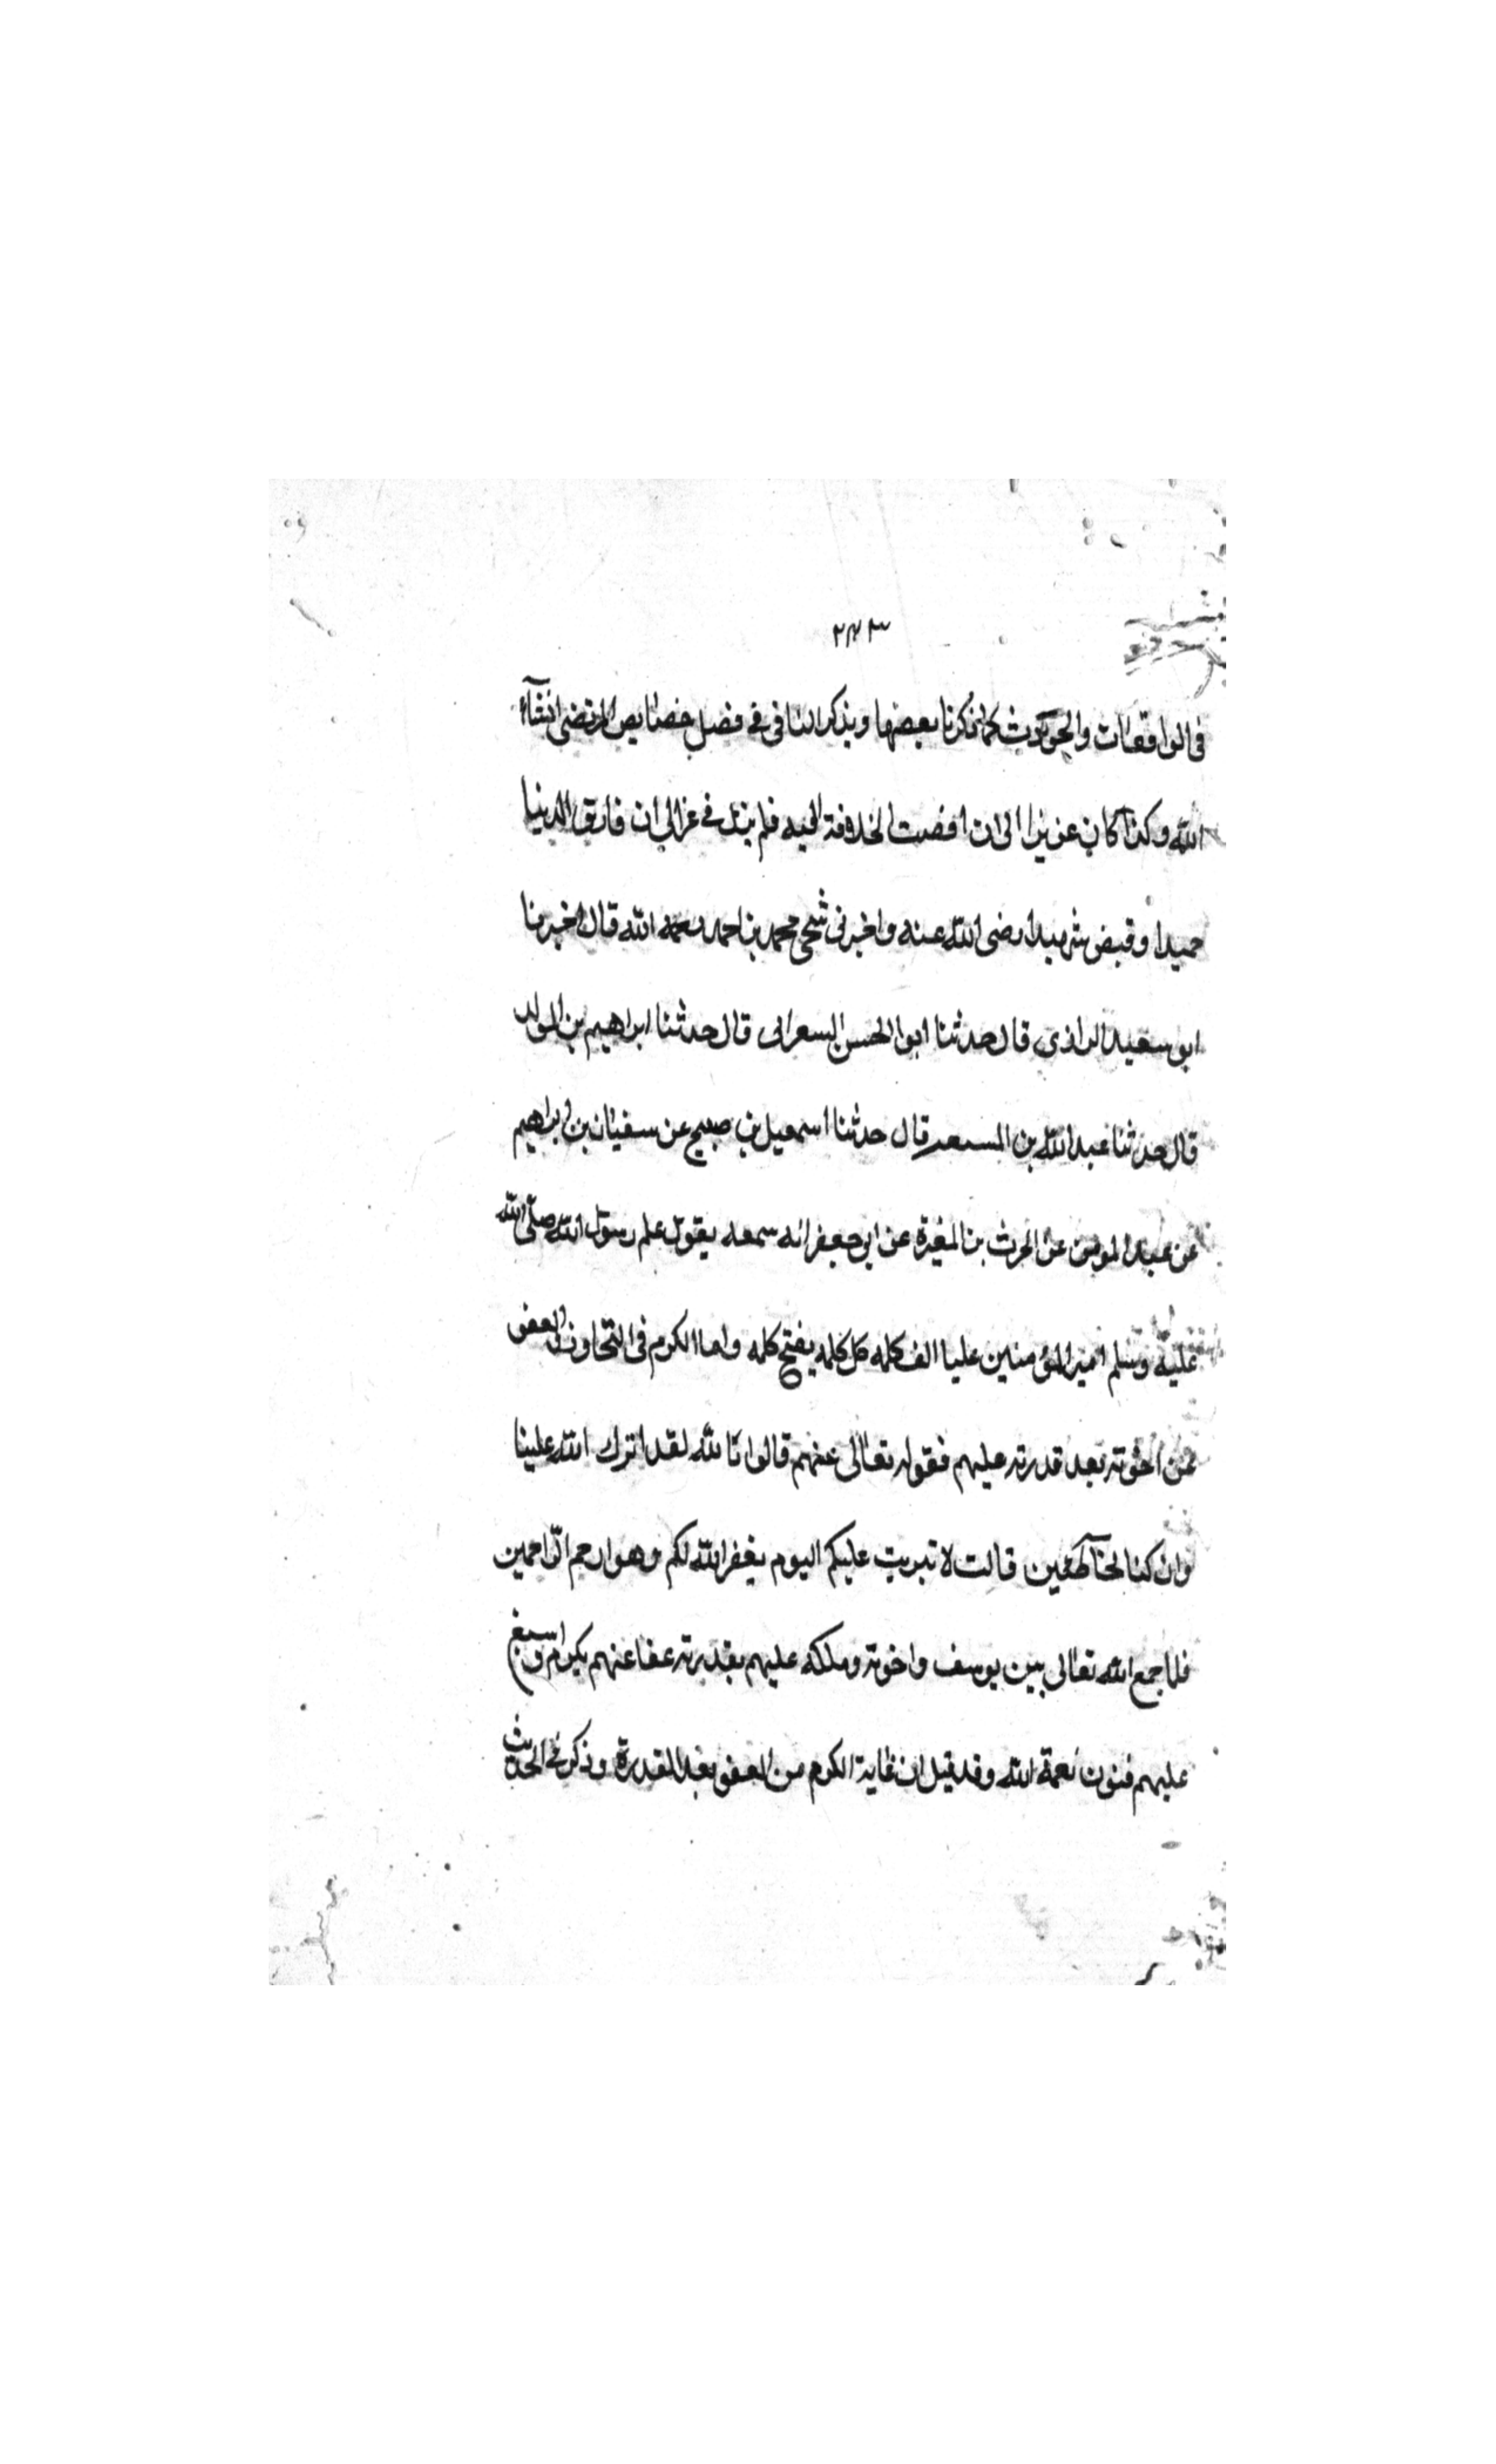 ٢٤٣
فى الواقعات والحوادث كما ذكرنا بعضها ويذكر الباقى فى فصل خصايص المرتضى انشآء
الله وكذا كان عزيزا الى ان افضت الخلافة اليه فلم يزل فى عز الى ان فارق الدنيا
حميدا وقبض شهيدا رضى الله عنه واخبرنى شيخى محمد بن احمد رحمه الله قال اخبرنا
ابو سعيد الرازى قال حدثنا ابوا الحسن السعرانى قال حدثنا ابراهيم بن المولد
قال حدثنا عبد الله بن المسعد قال حدثنا اسمعيل بن صبيح عن سفيان بن ابراهيم
عن عبد المومن عن الحرث بن المغيرة عن ابى جعفر انه سمعه يقول علم رسول الله صلى الله
عليه وسلم امير المؤمنين عليا الف كلمه كل كلمه يفتح كلمه واما الكرم فى التجاوز والعفو
عن اخوته بعد قدرته عليهم فقوله تعالى عنهم قالوا تا لله لقد اثرك الله علينا
وان كنا لخاطئين قالت لا تثريب عليكم اليوم يغفر الله لكم وهو ارحم الراحمين
فلما جمع الله تعالى بين يوسف واخوته وملكه عليهم بقدرته عفا عنهم بكرم واسبغ
عليهم فنون نعمة الله وقد قيل ان غاية الكرم من العفو بعد المقدرة وذكر فى الحديث